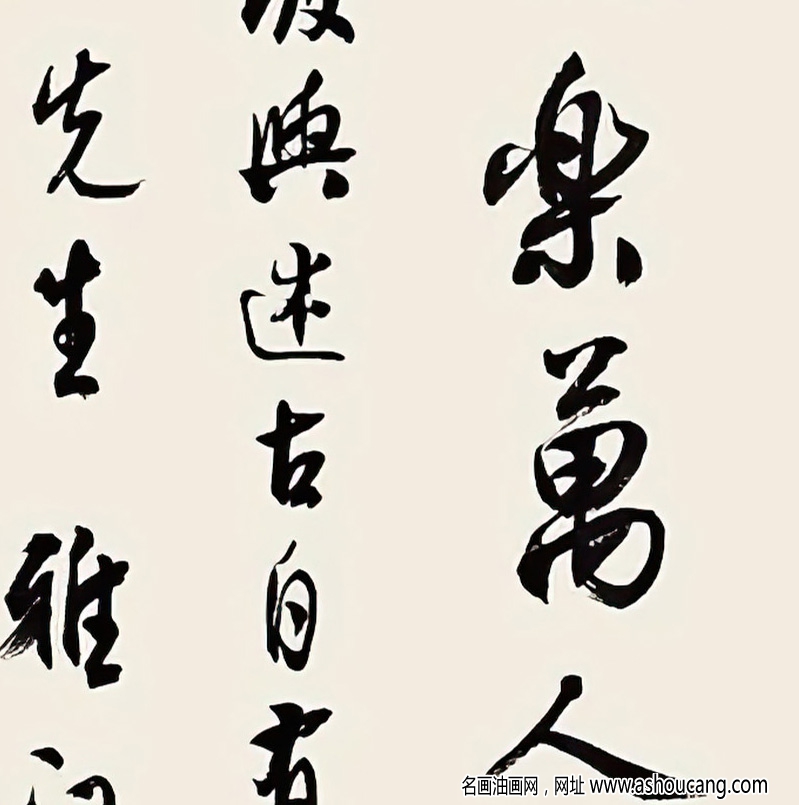 樂萬人
興述古自有
先生 雅
名画油画网，网址 www.ashoucang.com